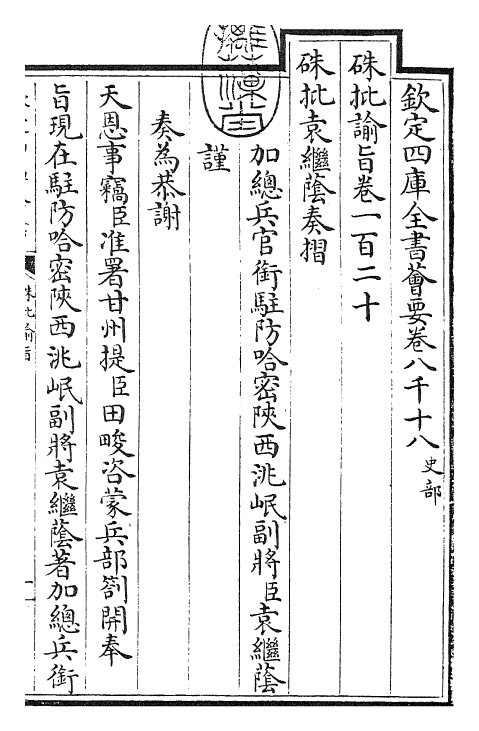 欽定四庫全書薈要卷八千十八 史部
硃批諭旨卷一百二十
硃批袁繼蔭奏摺
加總兵官銜駐防哈密陜西洮岷副將臣袁繼蔭
謹
奏為恭謝
天恩事竊臣准署甘州提臣田畯咨蒙兵部劄開奉
旨現在駐防哈密陜西洮岷副將袁繼蔭著加總兵銜
硃批諭旨